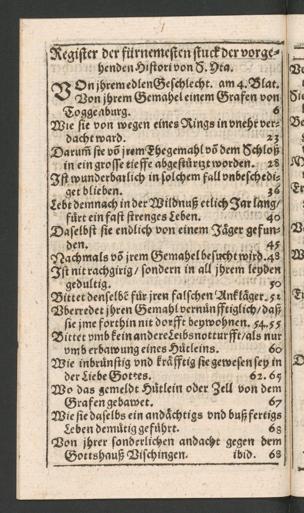 Register der fürnemesten stuck der vorge-
henden Histori von S. Yta.
VOn jhrem edlen Geschlecht. am 4. Blat.
Von jhrem Gemahel einem Grafen von
Toggenburg. 6
Wie sie von wegen eines Rings in vnehr ver-
dacht ward. 23
Darum̃ sie võ jrem Ehegemahl võ dem Schloß
in ein grosse tieffe abgestürtzt worden. 28
Ist wunderbarlich in solchem fall vnbeschedi-
get blieben. 36
Lebt demnach in der Wildnuß etlich Jar lang/
fürt ein fast strenges Leben. 40
Daselbst sie endlich von einem Jäger gefun-
den. 45
Nachmals võ jrem Gemahel besucht wird. 48
Ist nit rachgirig/ sondern in all jhrem leyden
gedultig. 50
Bittet denselbẽ für jren falschen Ankläger. 52
Vberredet jhren Gemahl vernünfftiglich/ daß
sie jme forthin nit dorffe beywohnen. 54. 55
Bittet vmb kein andere Leibsnotturfft/ als nur
vmb erbawung eines Hütleins. 60
Wie inbrünstig vnd kräfftig sie gewesen sey in
der Liebe Gottes. 62. 65
Wo das gemeldt Hütlein oder Zell von dem
Grafen gebawet. 67
Wie sie daselbs ein andächtigs vnd bußfertigs
Leben demütig geführt. 68
Von jhrer sonderlichen andacht gegen dem
Gottshauß Vischingen. ibid. 68